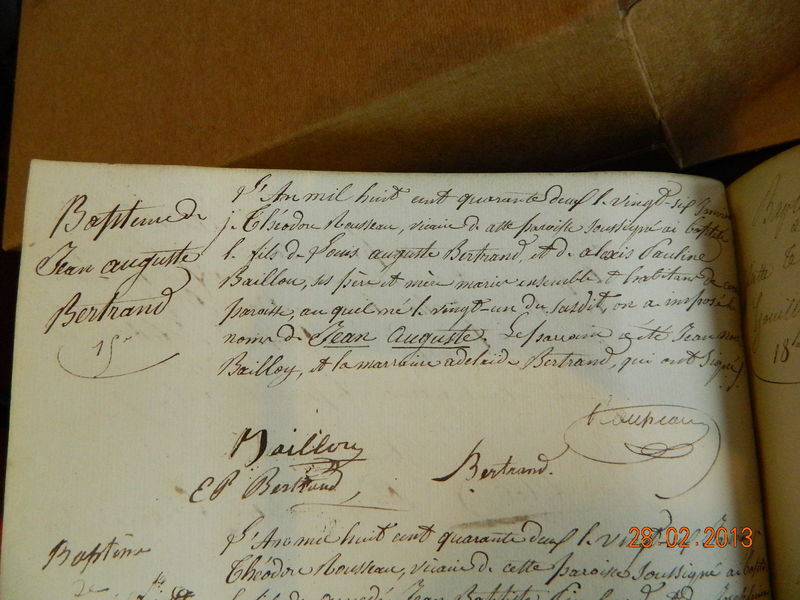 Baptème de
Jean auguste
Bertrand
15
L'An mil huit cent quarante deux le vingt-six Janvier
je Théodore Rousseau, vicaire de cette paroisse soussigné ai baptisé
le fils de Louis auguste Bertrand, et de alexis Pauline
Baillou, ses père et mère marier ensemble et habitans de cette
paroisse, au quel né le vingt-un du susdit, on a imposé le
noms de Jean Auguste. Le parrain a été Jean
Bailloy, et la marraine adelaide Bertrand, qui ont signé
Rousseau
Baillou
EP Bertrand
Bertrand.
Baptême
de
L'An mil huit cent quarante deux le vingt-six
Théodore Rousseau, vicaire de cette paroisse soussigné ai
le fils de Jean Baptiste
18
28.02.2013